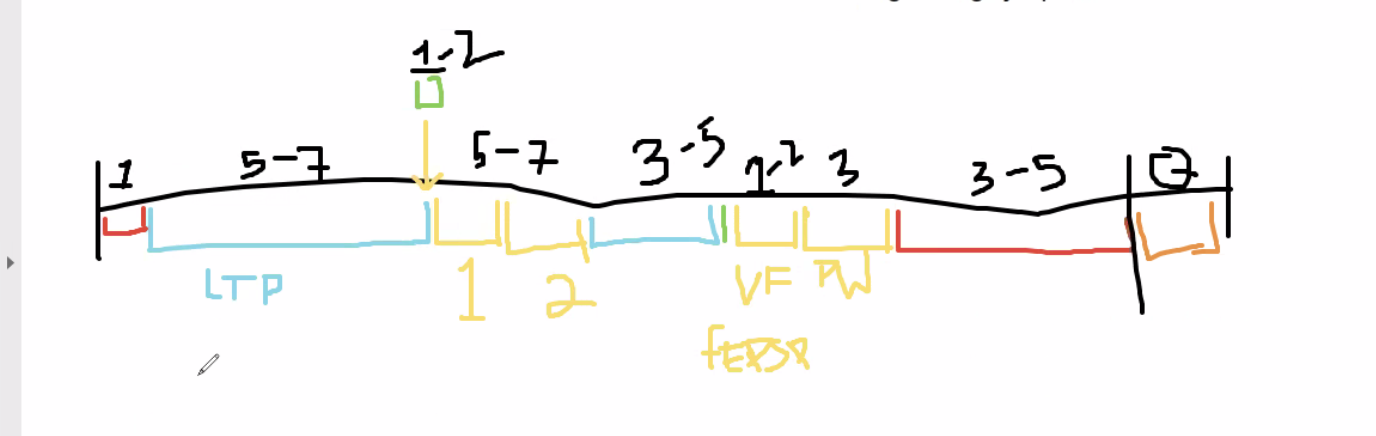 1-2
1 5-7 5-7 3-5 1-2 3 3-5
LTP 1 2 VF PW
fEPSP